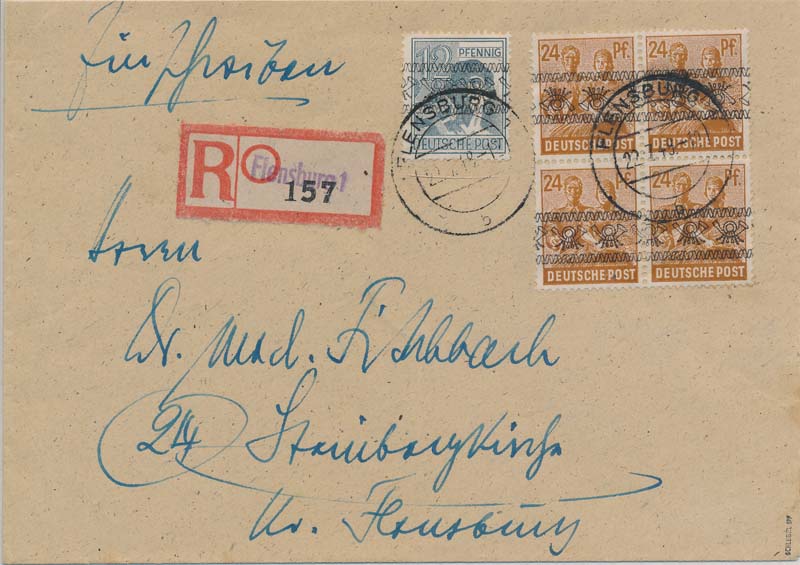 Einschreiben
12 PFENNIG
DEUTSCHE POST
24 Pf.
DEUTSCHE POST
24 Pf.
DEUTSCHE POST
24 Pf.
DEUTSCHE POST
24 Pf.
DEUTSCHE POST
FLENSBURG
b
FLENSBURG
R
Flensburg 1
157
Herrn
Dr. med. Fischbach
24 Steinbergkirche
Kr. Flensburg